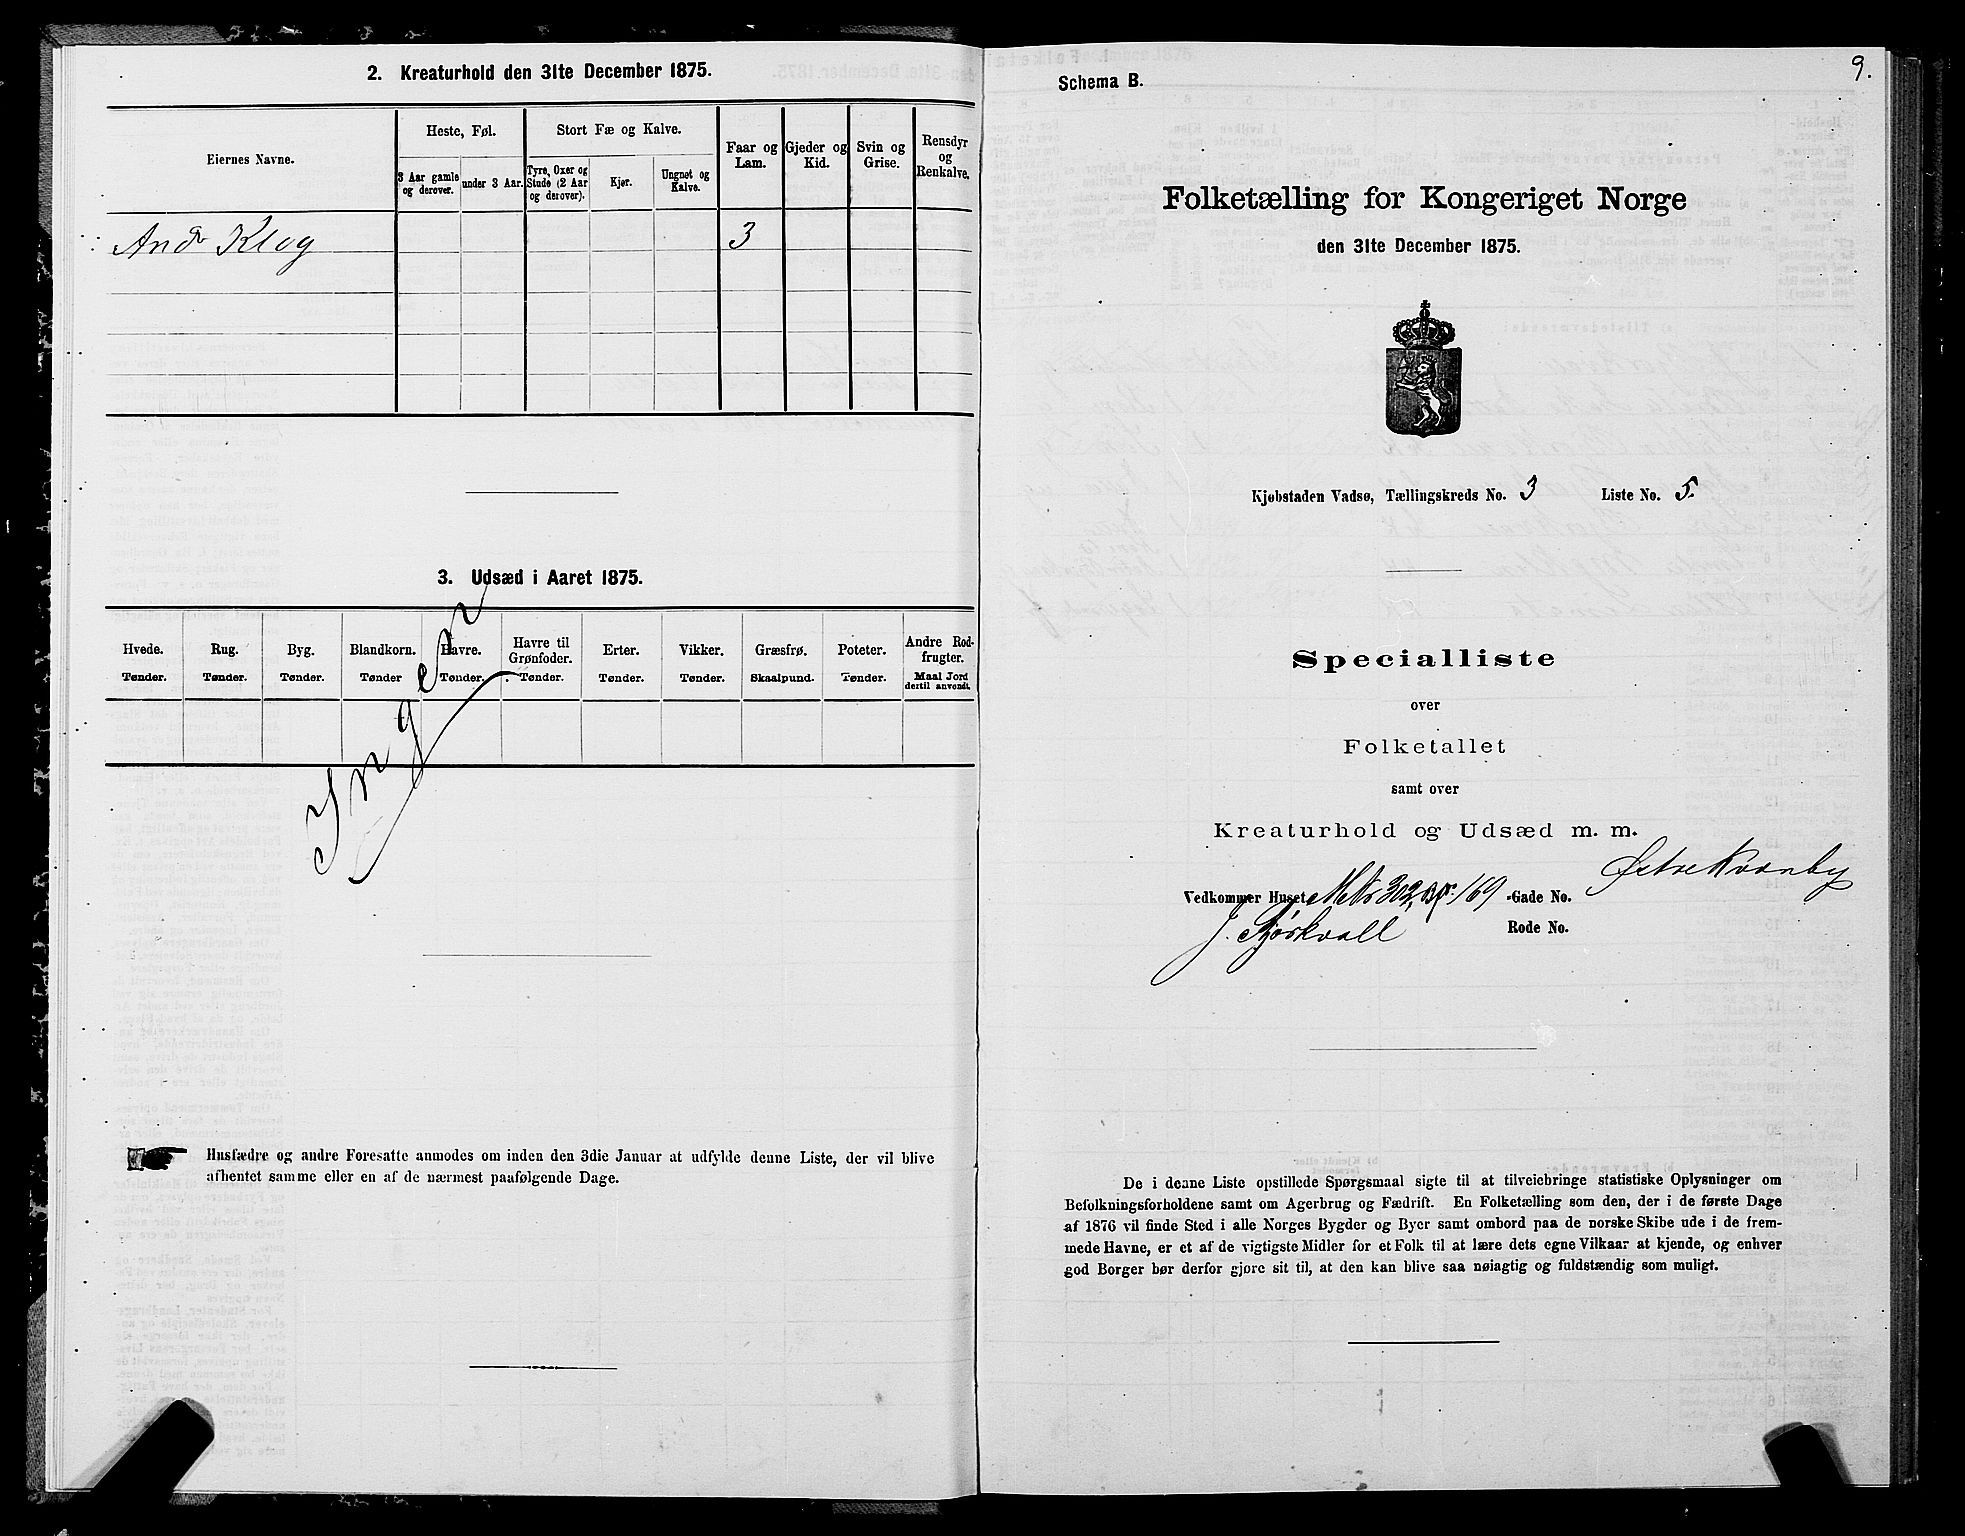 2. Kreaturhold den 31te December 1875.
Eiernes Navne.
Heste, Føl.
3 Aar gamle og derover.
under 3 Aar.
Stort Fæ og Kalve.
Tyre, Oxer og Stude (2 Aar og derover).
Kjør.
Ungnøt og Kalve.
Faar og Lam.
Gjeder og Kid.
Svin og Grise.
Rensdyr og Renkalve.
And. Klog 3
3. Udsæd i Aaret 1875.
Hvede. Tønder.
Rug. Tønder.
Byg. Tønder.
Blandkorn. Tønder
Havre. Tønder.
Havre til Grønfoder. Tønder.
Erter. Tønder.
Vikker. Tønder.
Græsfrø. Skaalpund.
Poteter. Tønder.
Andre Rodfrugter. Maal Jord dertil anvendt.
Ingen
Husfædre og andre Foresatte anmodes om inden den 3die Januar at udfylde denne Liste, der vil blive
afhentet samme eller en af de nærmest paafølgende Dage.
9.
Schema B.
Folketælling for Kongeriget Norge
den 31te December 1875.
Kjøbstaden Vadsø, Tællingskreds No. 3 Liste No. 5.
Specialliste
over
Folketallet
samt over
Kreaturhold og Udsæd m. m.
Østre Kvænby
Vedkommer Huset MNo 302, 169 -Gade No.
J. Rode No.
De i denne Liste opstillede Spørgsmaal sigte til at tilveiebringe statistiske Oplysninger om
Befolkningsforholdene samt om Agerbrug og Fædrift. En Folketælling som den, der i de første Dage
af 1876 vil finde Sted i alle Norges Bygder og Byer samt ombord paa de norske Skibe ude i de frem-
mede Havne, er et af de vigtigste Midler for et Folk til at lære dets egne Vilkaar at kjende, og enhver
god Borger bør derfor gjøre sit til, at den kan blive saa nøiagtig og fuldstændig som muligt.